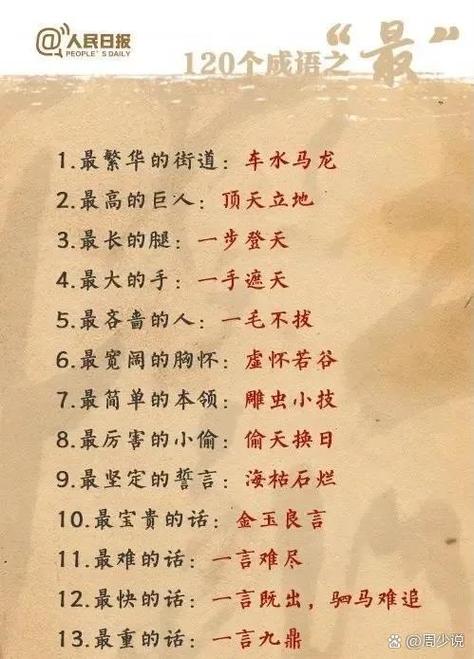 @人民日报
PEOPLE'S DAILY
120个成语之“最”
1.最繁华的街道：车水马龙
2.最高的巨人：顶天立地
3.最长的腿：一步登天
4.最大的手：一手遮天
5.最吝啬的人：一毛不拔
6.最宽阔的胸怀：虚怀若谷
7.最简单的本领：雕虫小技
8.最厉害的小偷：偷天换日
9.最坚定的誓言：海枯石烂
10.最宝贵的话：金玉良言
11.最难的话：一言难尽
12.最快的话：一言既出，驷马难追
13.最重的话：一言九鼎
@周少说